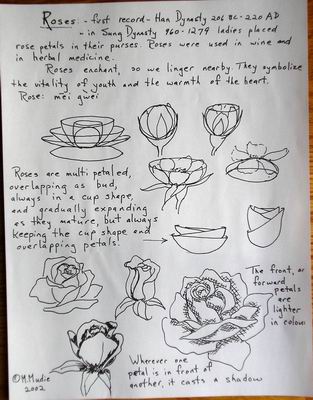 Roses: - first record - Han Dynasty 206 BC - 220 AD
- in Sung Dynasty 960 - 1279 ladies placed
rose petals in their purses. Roses were used in wine and
in herbal medicine.
Roses enchant, so we linger nearby. They symbolize
the vitality of youth and the warmth of the heart.
Rose: mei gwei
Roses are multi petaled,
overlapping as bud,
always in a cup shape,
and gradually expanding
as they mature, but always
keeping the cup shape and
overlapping petals!
The front, or
forward
petals
are
lighter
in colour
Wherever one
petal is in front of
another, it casts a shadow
©M.Mudie
2002